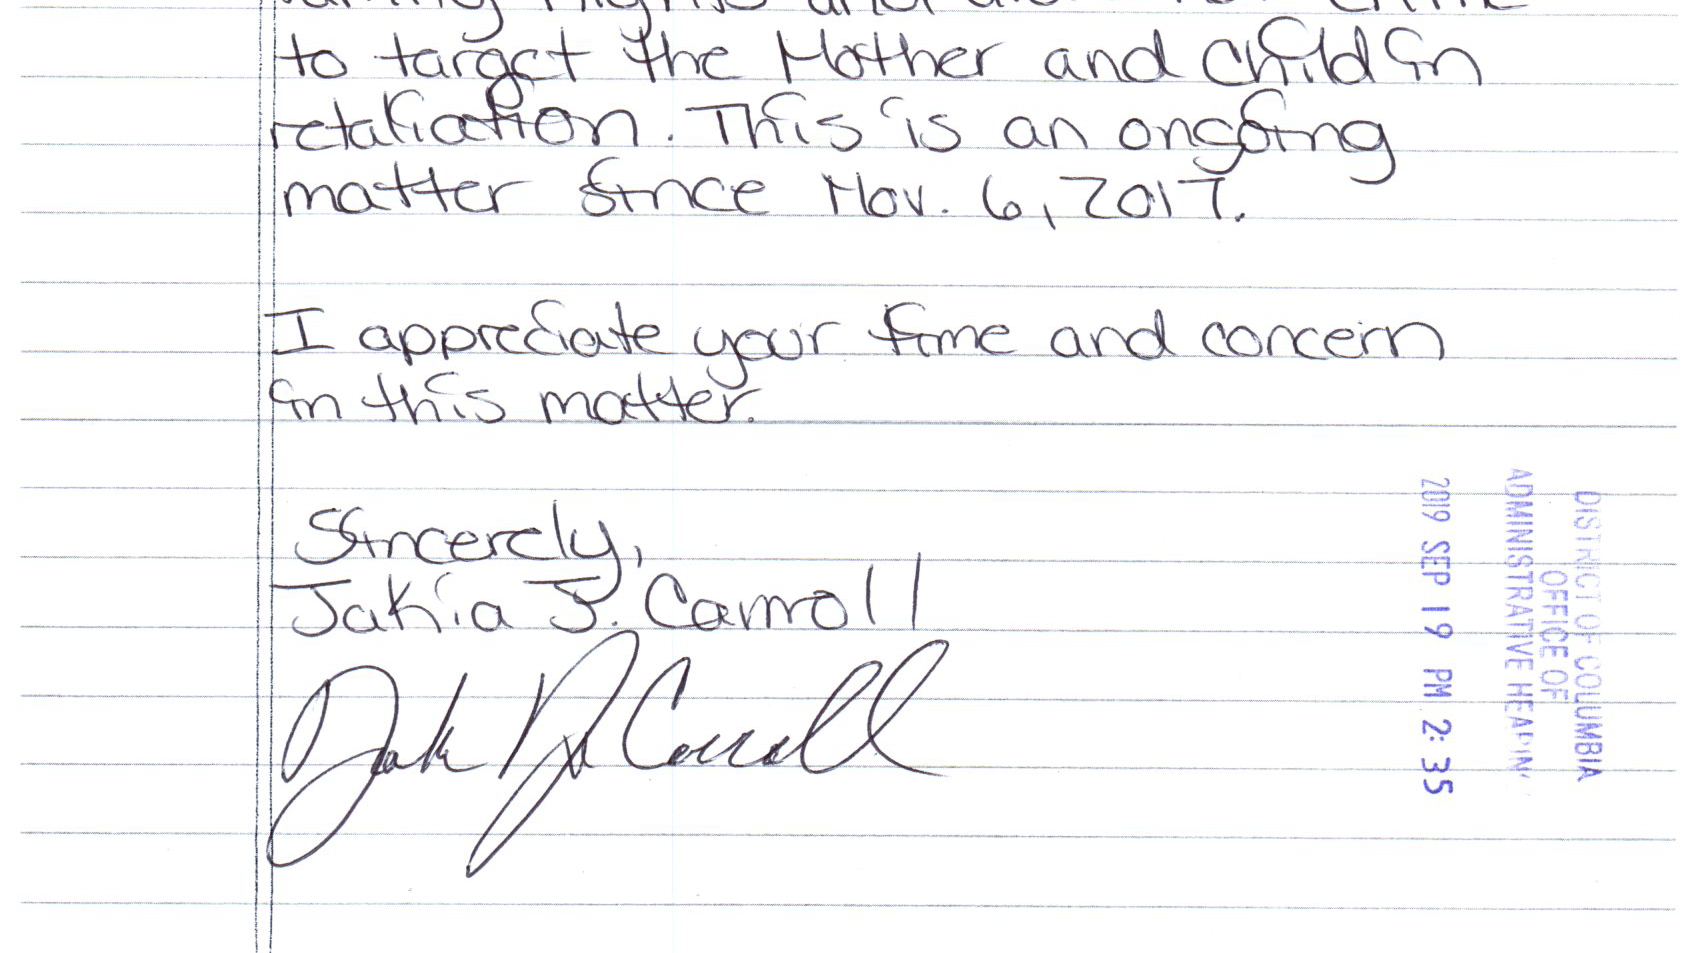 to target the Mother and child in
retaliation. This is an ongoing
matter since Nov. 6, 2017.
I appreciate your time and concern
in this matter.
Sincerely,
Jakia J. Carroll
DISTRICT OF COLUMBIA
OFFICE OF
ADMINISTRATIVE HEARIN
2019 SEP 19 PM 2:35